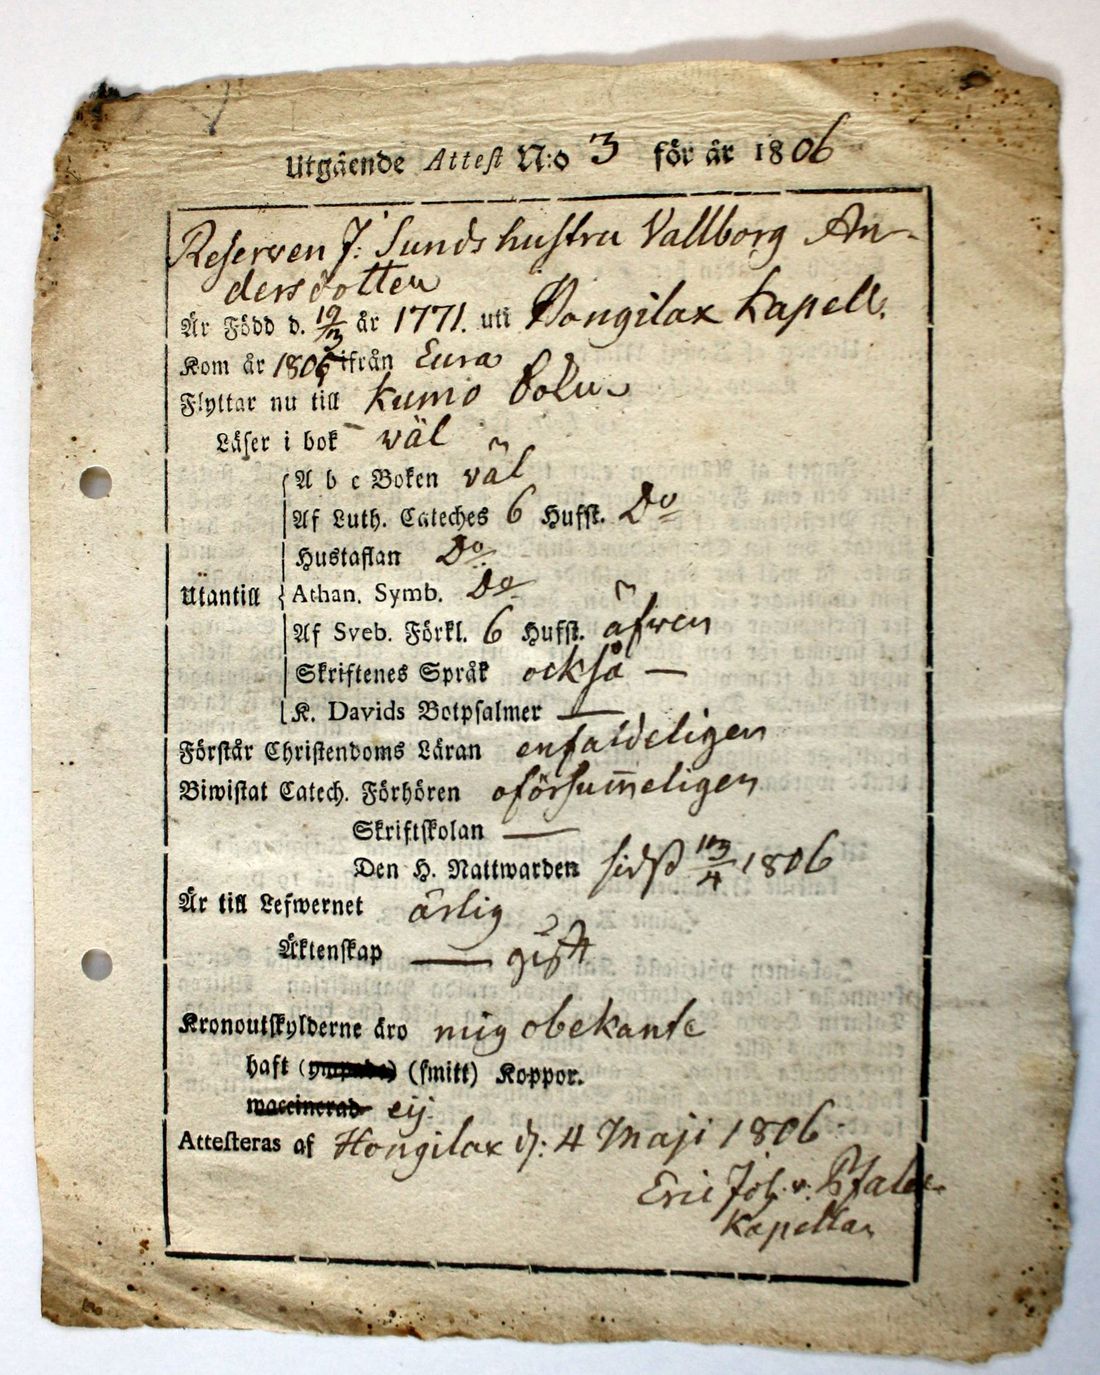 Utgående Attest N:o 3 för år 1806
Reserven J: Sunds hustru Vallborg An-
dersdotter
Är Född d. 19/3 år 1771. uti Hongilax Kapell.
Kom år 1805 ifrån Eura
Flyttar nu till Kumo
Läser i bok väl
A b c Boken väl
Af Luth. Cateches 6 Hufst. Do
Hustaflan Do
Utantill Athan. Symb. Do
Af Sveb. Förkl. 6 Hufst. äfwen
Skriftenes Språk också —
K. Davids Botpsalmer —
Förstår Christendoms Läran enfaldeligen
Biwistat Catech. Förhören oförsum̅eligen
Skriftskolan —
Den H. Nattwarden sidst 13/4 1806
Är till Lefwernet ärlig
Äktenskap — gift
Kronoutskylderne äro mig obekante
haft (smitt) Koppor.
waccinerad eij
Attesteras af Hongilax d: 4 Maji 1806
Eric Joh: v:
Kapellan